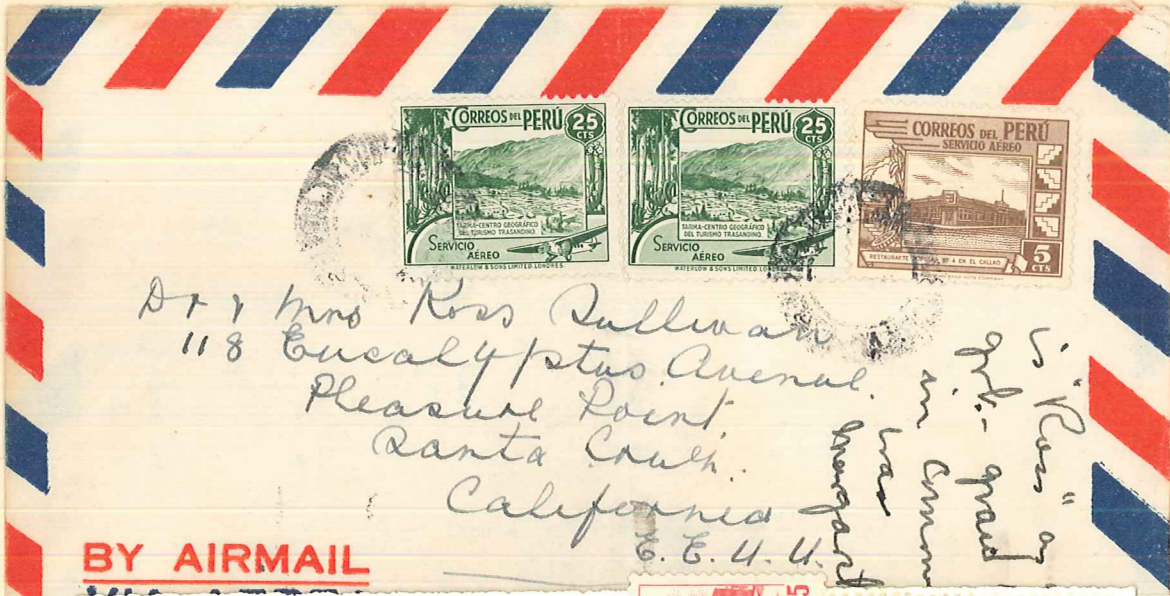 CORREOS DEL PERÚ
25
CTS
TARMA-CENTRO GEOGRÁFICO
DEL TURISMO TRASANDINO.
SERVICIO
AÉREO
WATERLOW & SONS LIMITED. LONDRES.
CORREOS DEL PERÚ
25
CTS
TARMA-CENTRO GEOGRÁFICO
DEL TURISMO TRASANDINO.
SERVICIO
AÉREO
WATERLOW & SONS LIMITED. LONDRES.
CORREOS DEL PERÚ
SERVICIO AÉREO
RESTAURANTE POPULAR Nº 4 EN EL CALLAO
5
CTS
Dr & Mrs Ross Sullivan
118 Eucalyptus Avenue.
Pleasure Point
Santa Cruz.
California
E.E.U.U.
is "Ross"
in
has
BY AIRMAIL
5